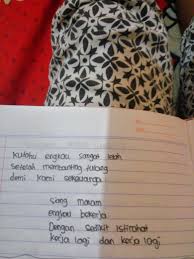 Kutahu engkau sangat lelah
setelah membanting tulang
demi kami sekeluarga
siang malam
engkau bekerja
Dengan sedikit istirahat
kerja lagi dan kerja lagi